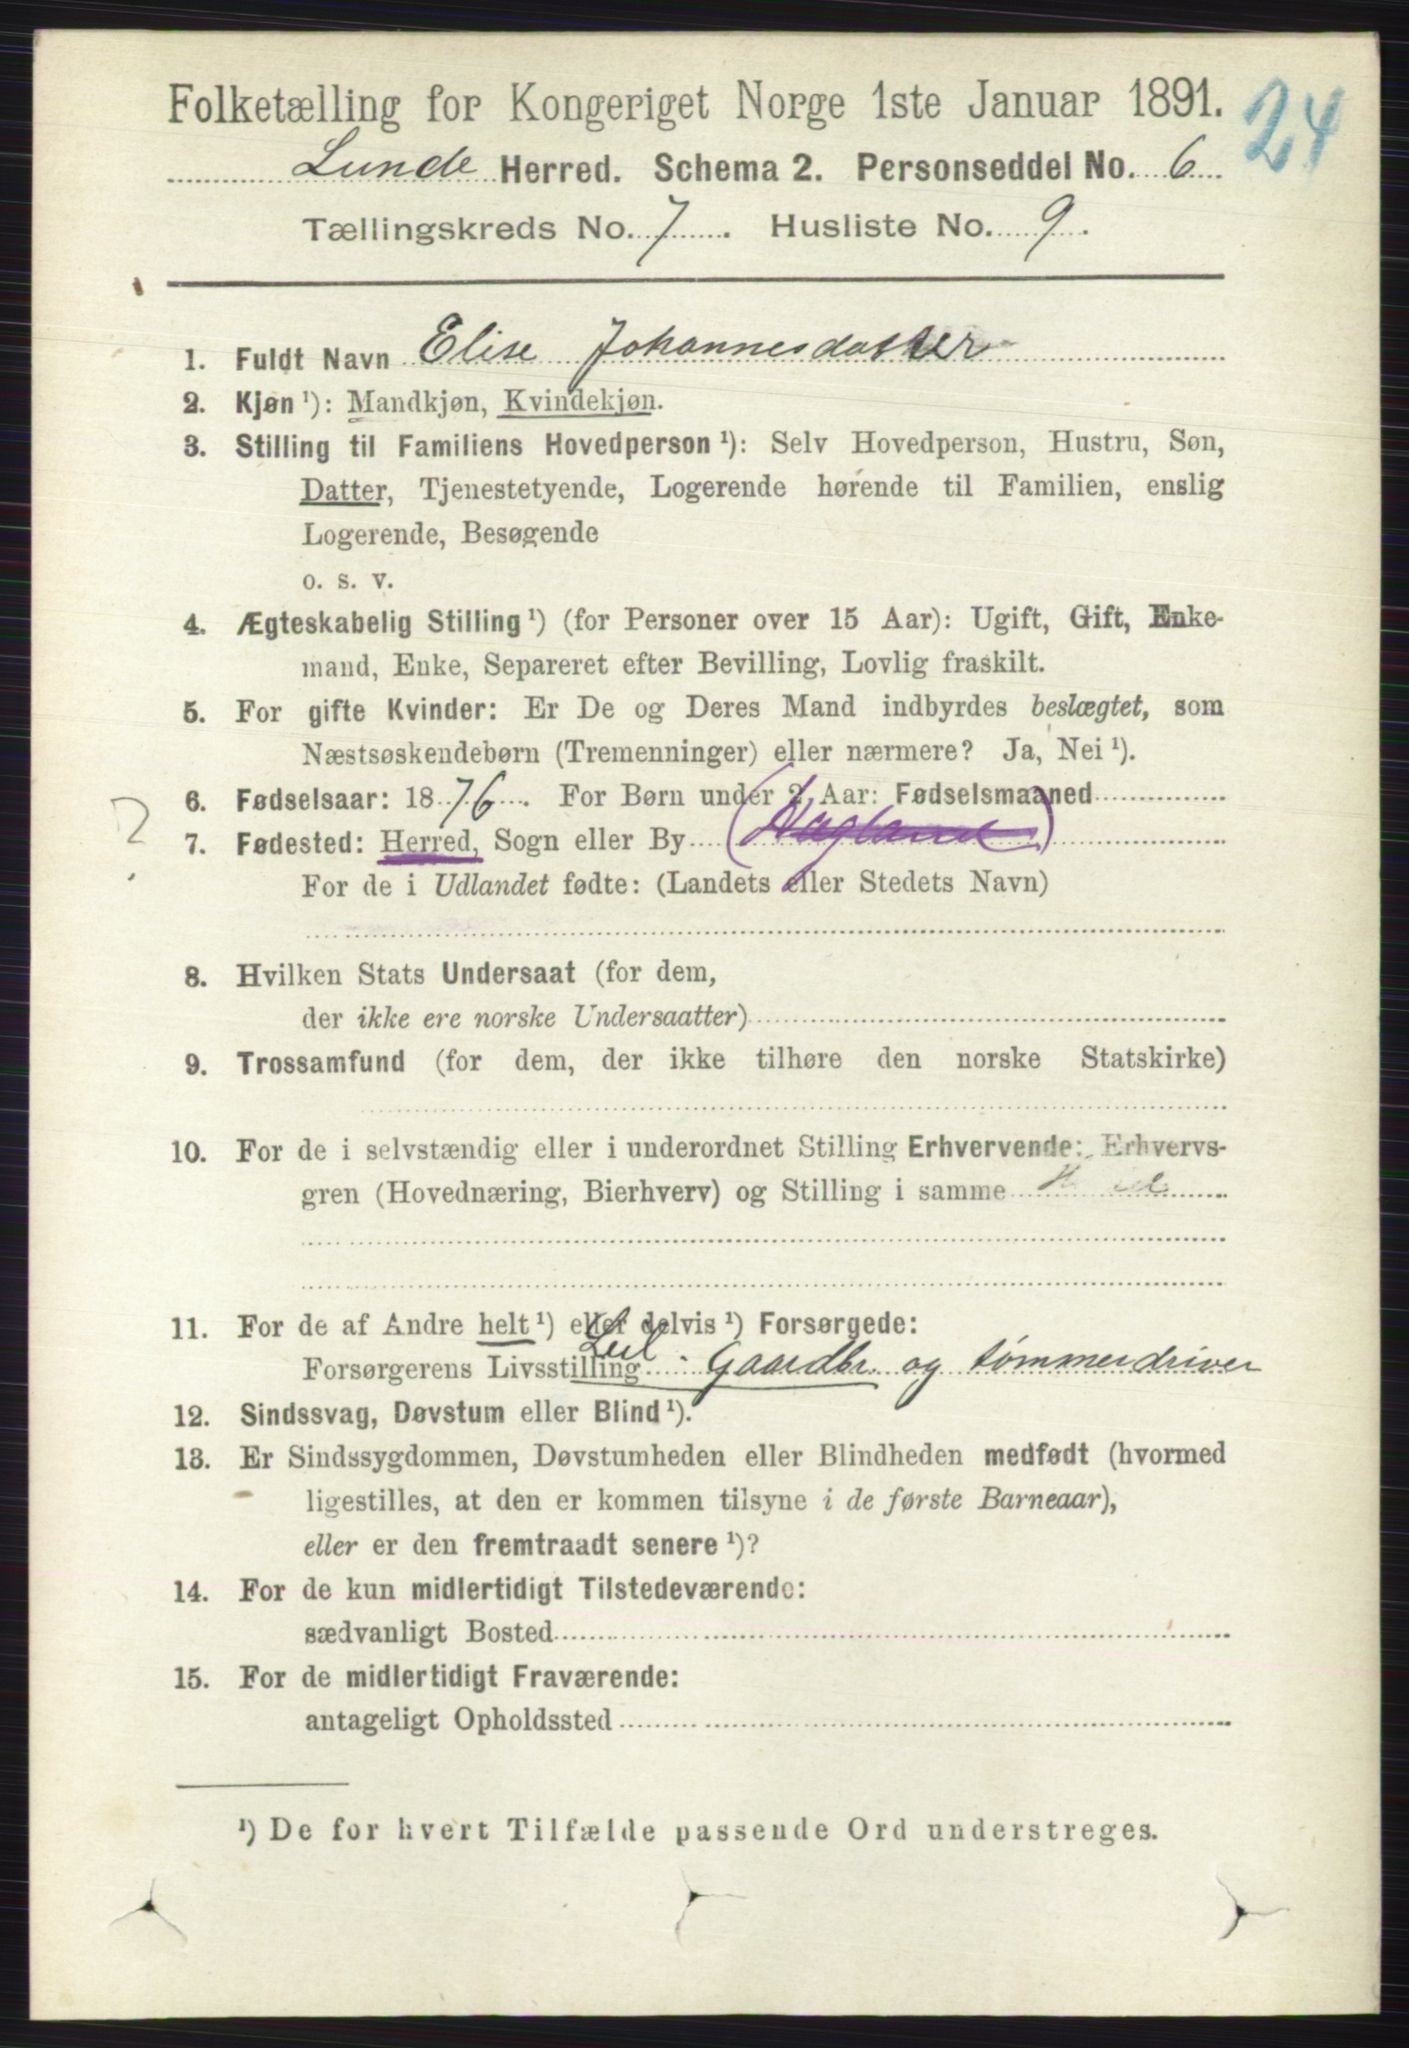 Folketælling for Kongeriget Norge 1ste Januar 1891.
24
Lunde Herred. Schema 2. Personseddel No. 6
Tællingskreds No. 7. Husliste No. 9.
1. Fuldt Navn Elise Johannesdatter
2. Kjøn ¹): Mandkjøn, Kvindekjøn.
3. Stilling til Familiens Hovedperson ¹): Selv Hovedperson, Hustru, Søn,
Datter, Tjenestetyende, Logerende hørende til Familien, enslig
Logerende, Besøgende
o. s. v.
4. Ægteskabelig Stilling ¹) (for Personer over 15 Aar): Ugift, Gift, Enke-
mand, Enke, Separeret efter Bevilling, Lovlig fraskilt.
5. For gifte Kvinder: Er De og Deres Mand indbyrdes beslægtet, som
Næstsøskendebørn (Tremenninger) eller nærmere? Ja, Nei ¹).
6. Fødselsaar: 1876. For Børn under 2 Aar: Fødselsmaaned
?
7. Fødested: Herred, Sogn eller By
For de i Udlandet fødte: (Landets eller Stedets Navn)
8. Hvilken Stats Undersaat (for dem,
der ikke ere norske Undersaatter)
9. Trossamfund (for dem, der ikke tilhøre den norske Statskirke)
10. For de i selvstændig eller i underordnet Stilling Erhvervende: Erhvervs-
gren (Hovednæring, Bierhverv) og Stilling i samme
11. For de af Andre helt ¹) eller delvis ¹) Forsørgede:
Forsørgerens Livsstilling Gaardbr. og tømmerdriver
12. Sindssvag, Døvstum eller Blind ¹).
13. Er Sindssygdommen, Døvstumheden eller Blindheden medfødt (hvormed
ligestilles, at den er kommen tilsyne i de første Barneaar),
eller er den fremtraadt senere ¹)?
14. For de kun midlertidigt Tilstedeværende:
sædvanligt Bosted
15. For de midlertidigt Fraværende:
antageligt Opholdssted
¹) De for hvert Tilfælde passende Ord understreges.